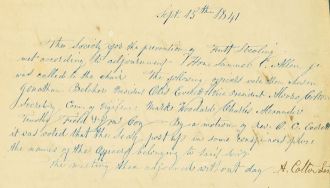 Sept. 15th 1841
The Society for the prevention of "Fruit Stealing"
met according to adjournment - Hon Samuel C. Allen Jr
was called to the chair - The following officers were then chosen
Jonathan Belcher President Otis Vice President Alonzo Colton
Secretary Com. of Vigilance Charles Alexander
Timothy Field & - By a motion of Rev. B. C.
it was voted that the Secty. post up in some conspicuous place
the names of the Officers belonging to said Society
The meeting then adjourned without day - A. Colton Secty